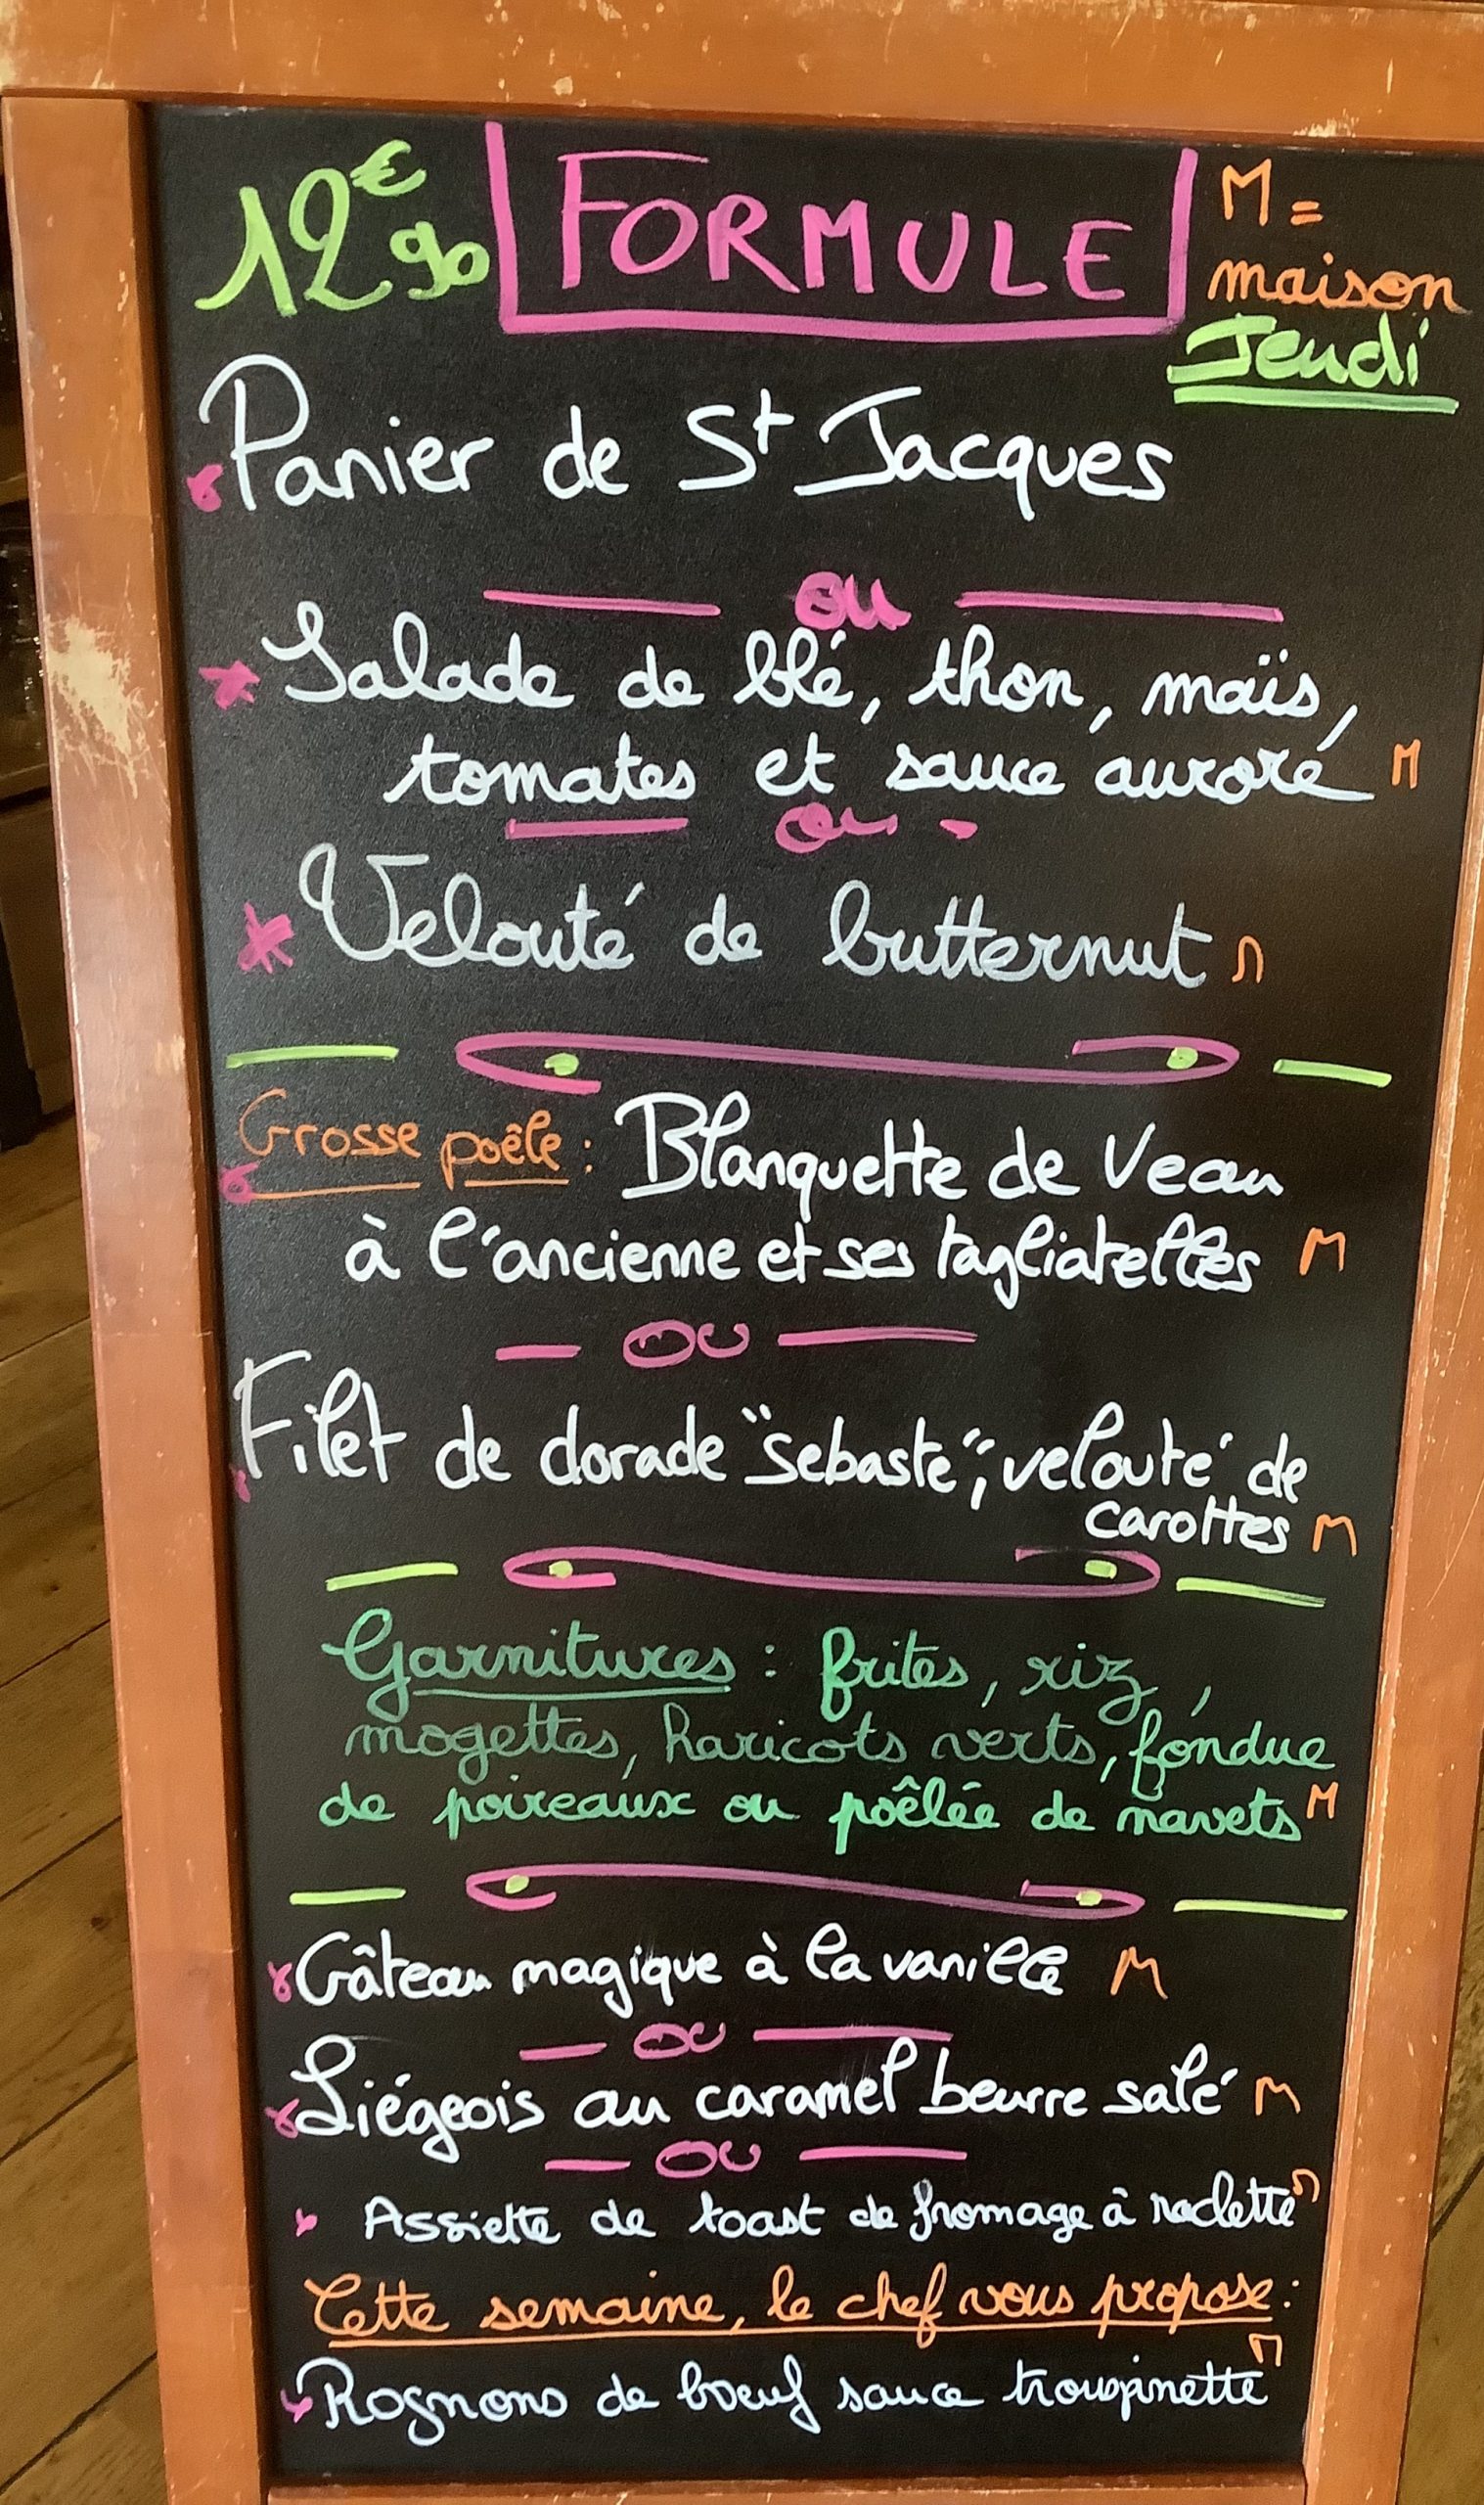 12€90 FORMULE M =
maison
Jeudi
Panier de St Jacques
ou
* Salade de blé, thon, maïs,
tomates et sauce aurore M
ou
* Velouté de butternut M
Grosse poêle : Blanquette de Veau
à l'ancienne et ses tagliatelles M
OU
Filet de dorade "sebaste", velouté de
carottes M
Garnitures : frites, riz,
mogettes, haricots verts, fondue
de poireaux ou poêlée de navets M
Gâteau magique à la vanille M
OU
Liégeois au caramel beurre salé M
OU
Assiette de toast de fromage à raclette M
Cette semaine, le chef vous propose :
Rognons de boeuf sauce trouspinette M